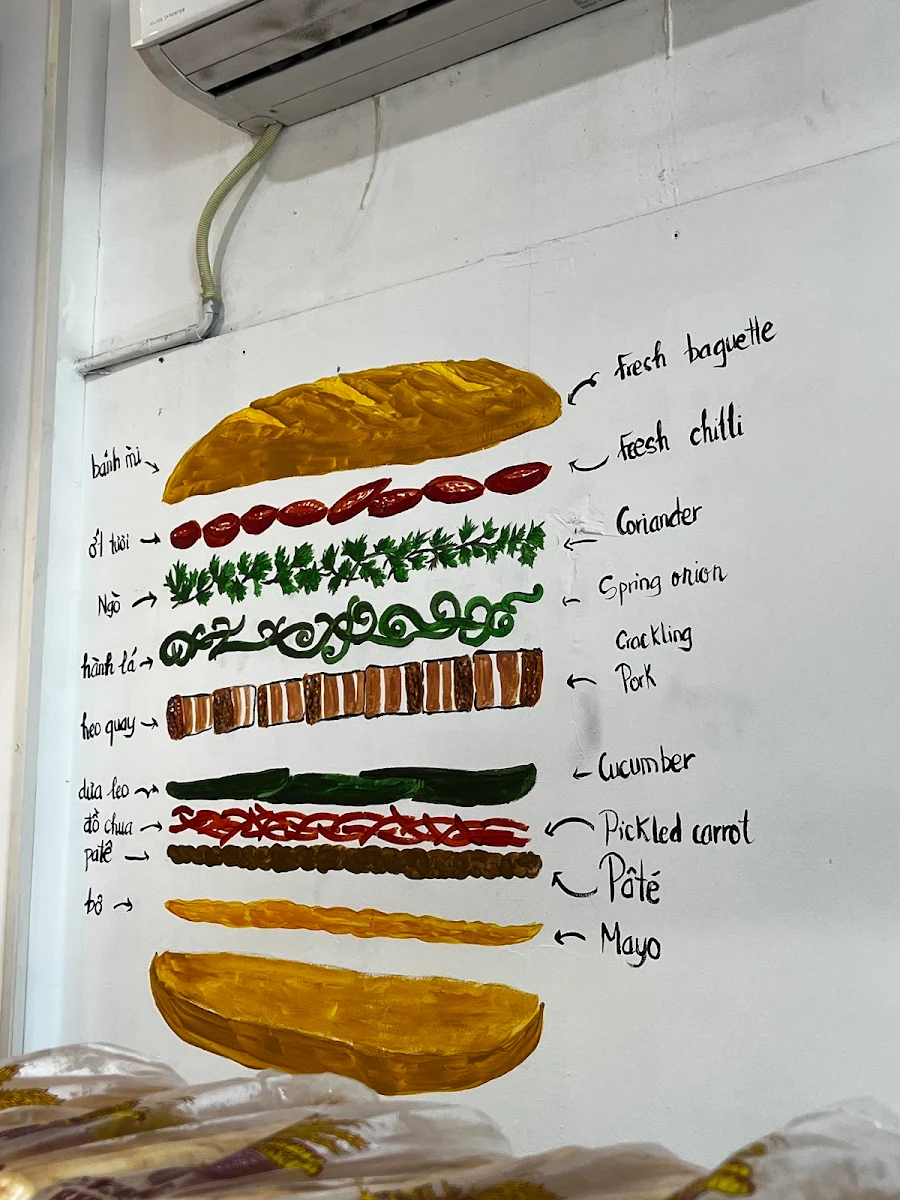 Fresh baguette
bánh mì
Fresh chilli
ớt tươi
Coriander
Ngò
Spring onion
hành lá
Crackling
Pork
heo quay
Cucumber
dưa leo
Pickled carrot
đồ chua
Pâté
patê
Mayo
bơ